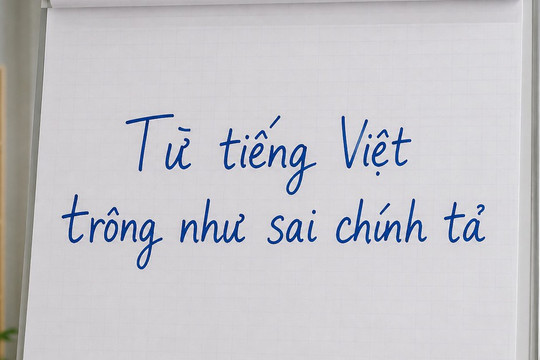 Từ tiếng Việt
trông như sai chính tả